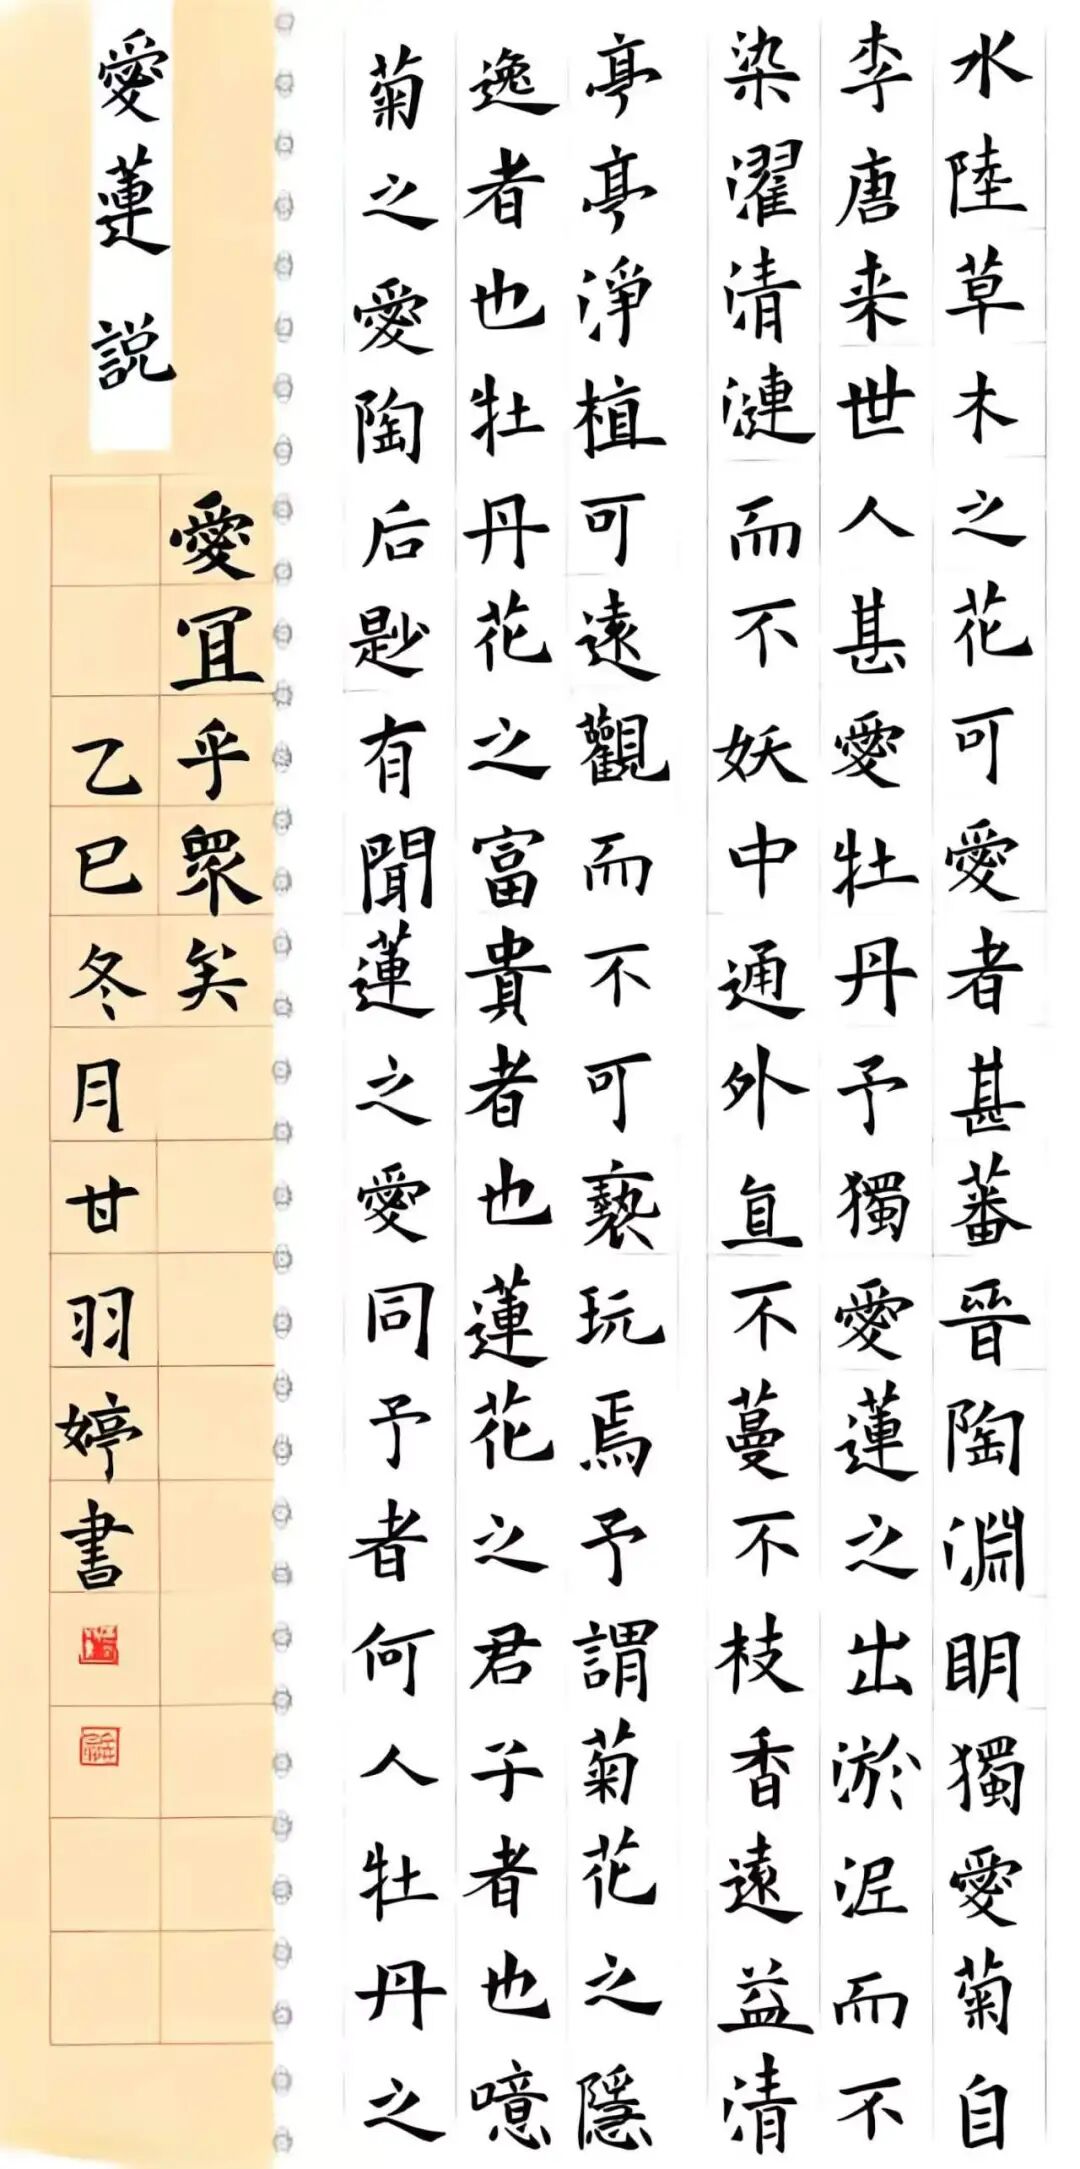 水陸草木之花可愛者甚蕃晉陶淵明獨愛菊自
李唐来世人甚愛牡丹予獨愛蓮之出淤泥而不
染濯清漣而不妖中通外直不蔓不枝香遠益清
亭亭淨植可遠觀而不可褻玩焉予謂菊花之隱
逸者也牡丹花之富貴者也蓮花之君子者也噫
菊之愛陶后尟有聞蓮之愛同予者何人牡丹之
愛冝乎眾矣
愛蓮説
乙巳冬月甘羽婷書